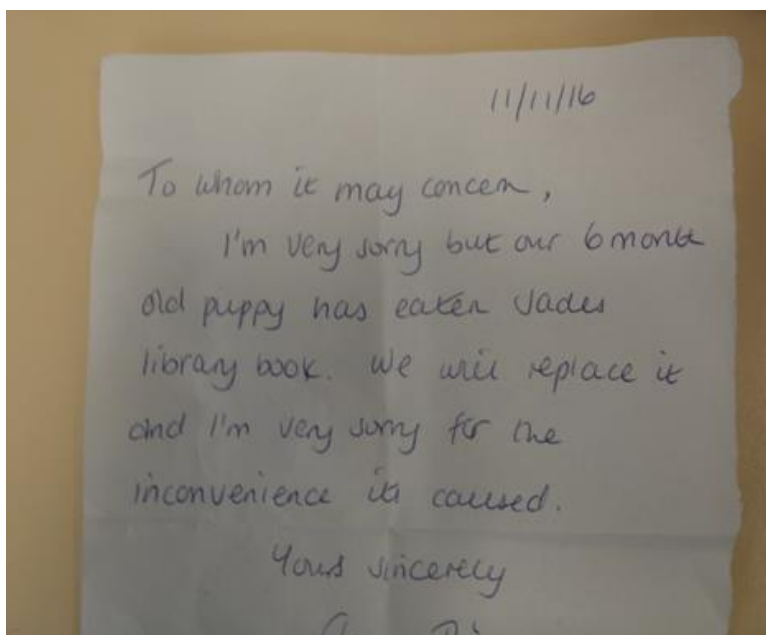 11/11/16
To whom it may concern,
I'm very sorry but our 6 month
old puppy has eaten Jades
library book. We will replace it
and I'm very sorry for the
inconvenience its caused.
Yours sincerely